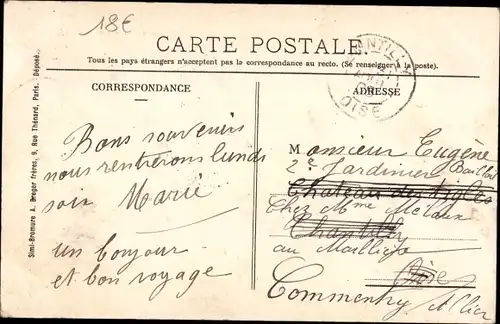 18€
CARTE POSTALE
Tous les pays étrangers n'acceptent pas la correspondance au recto. (Se renseigner à la poste).
CORRESPONDANCE
ADRESSE
CHANTILLY
OISE
Simi-Bromure A. Breger frères, 9, Rue Thénard, Paris. Déposé.
Bons souvenirs
nous rentrerons lundi
soir Marie
un bonjour
et bon voyage
Monsieur Eugène
2e Jardinier
Chateau des Aigles
Chez Mme
Chantilly
au
Oise
Commentry Allier